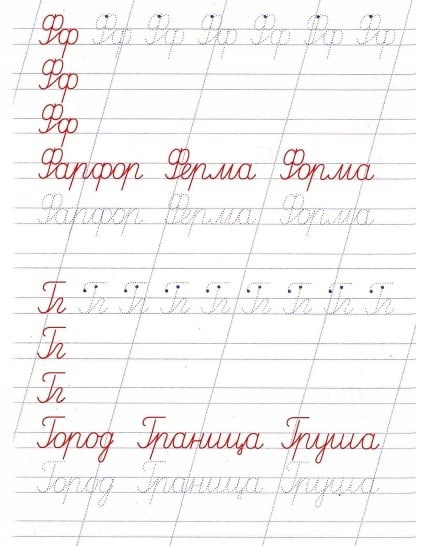 Фф Фф Фф Фф Фф Фф Фф
Фф
Фф
Фарфор Ферма Форма
Фарфор Ферма Форма
Гг Гг Гг Гг Гг Гг Гг Гг Гг
Гг
Гг
Город Граница Груша
Город Граница Груша